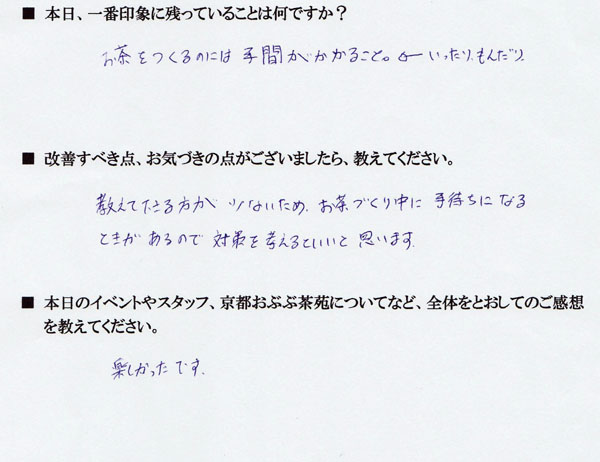 ■ 本日、一番印象に残っていることは何ですか？
お茶をつくるのには 手間がかかること。← いったり、もんだり、
■ 改善すべき点、お気づきの点がございましたら、教えてください。
教えて下さる方が 少ないため、お茶づくり中に 手待ちになる
ときが あるので 対策を考えるといいと 思います。
■ 本日のイベントやスタッフ、京都おぶぶ茶苑についてなど、全体をとおしてのご感想
を教えてください。
楽しかったです。